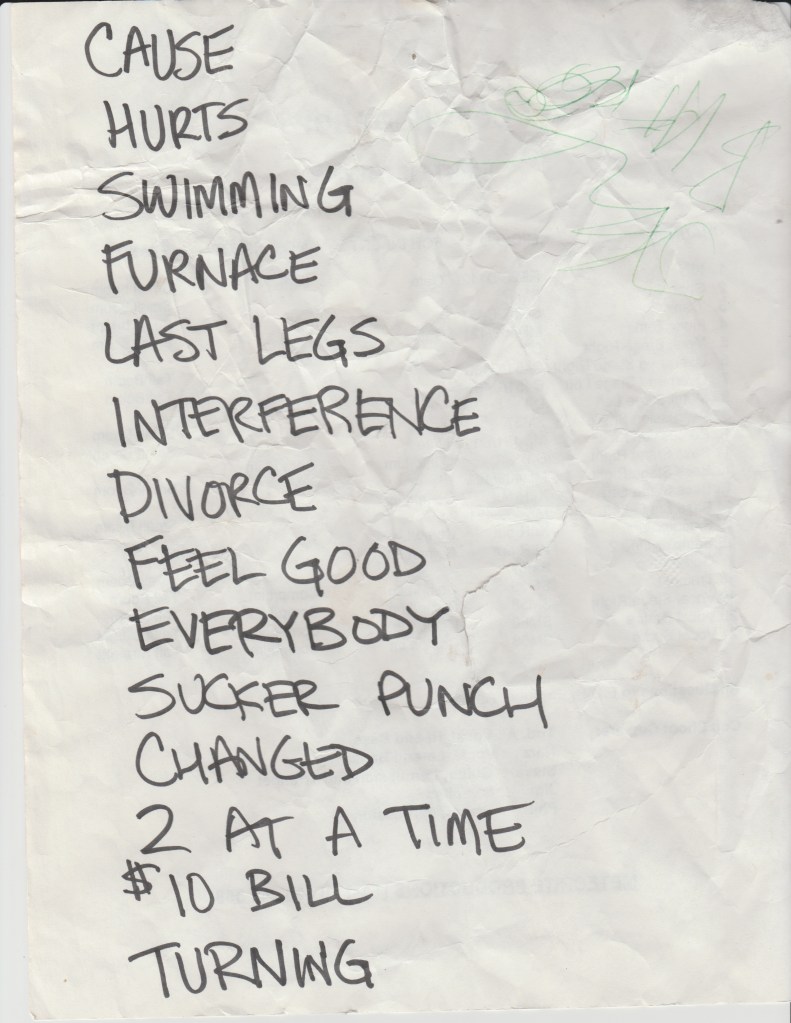 CAUSE
HURTS
SWIMMING
FURNACE
LAST LEGS
INTERFERENCE
DIVORCE
FEEL GOOD
EVERYBODY
SUCKER PUNCH
CHANGED
2 AT A TIME
$10 BILL
TURNING